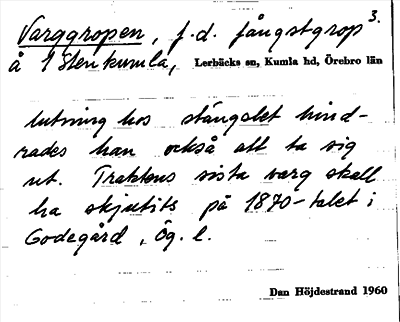 Varggropen, f.d. fångstgrop 3.
å 1 Stenkumla, Lerbäcks sn, Kumla hd, Örebro län
lutning hos stängslet hind-
rades han också att ta sig
ut. Traktens sista varg skall
ha skjutits på 1870-talet i
Godegård, Ög. l.
Dan Höjdestrand 1960